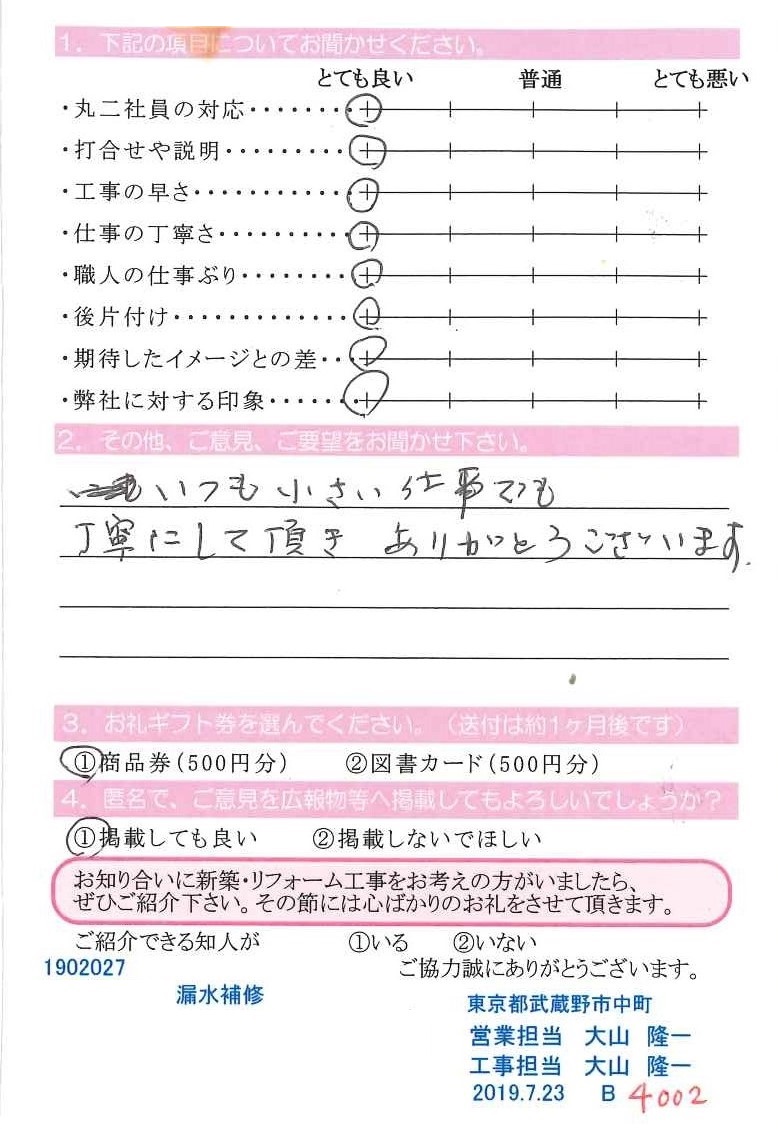 1. 下記の項目についてお聞かせください。
とても良い 普通 とても悪い
・丸二社員の対応・・・・・・・
・打合せや説明・・・・・・・・・
・工事の早さ・・・・・・・・・・・
・仕事の丁寧さ・・・・・・・・・
・職人の仕事ぶり・・・・・・・・
・後片付け・・・・・・・・・・・・
・期待したイメージとの差・・
・弊社に対する印象・・・・・・
2. その他、ご意見、ご要望をお聞かせ下さい。
いつも小さい仕事でも
丁寧にして頂き ありがとうございます.
3. お礼ギフト券を選んでください。(送付は約1ヶ月後です)
①商品券(500円分) ②図書カード(500円分)
4. 匿名で、ご意見を広報物等へ掲載してもよろしいでしょうか?
①掲載しても良い ②掲載しないでほしい
お知り合いに新築・リフォーム工事をお考えの方がいましたら、
ぜひご紹介下さい。その節には心ばかりのお礼をさせて頂きます。
ご紹介できる知人が ①いる ②いない
1902027 ご協力誠にありがとうございます。
漏水補修
東京都武蔵野市中町
営業担当 大山 隆一
工事担当 大山 隆一
2019.7.23 B 4002